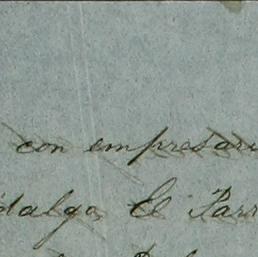 con empresari
idalgo El Parr